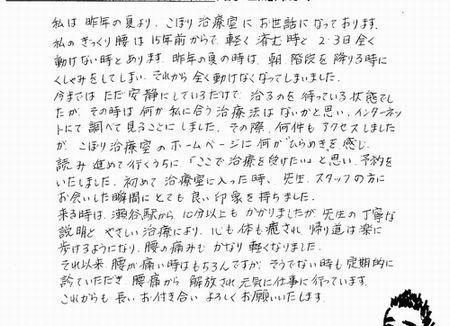 私は昨年の夏より、こほり治療室にお世話になっております。
私のぎっくり腰は15年前からで、軽く済む時と2・3日全く
動けない時とあります。昨年の夏の時は、朝、階段を降りる時に
くしゃみをしてしまい、それから全く動けなくなってしまいました。
今まではただ安静にしているだけで、治るのを待っている状態でし
たが、その時は何か私に合う治療法はないかと思い、インターネッ
トにて調べて見ることにしました。その際、何件もアクセスしました
が、こほり治療室のホームページに何か「ひらめきを感じ、
読み進めて行くうちに「ここで治療を受けたい」と思い、予約を
いたしました。初めて治療室に入った時、先生、スタッフの方に
お会いした瞬間にとても良い印象を持ちました。
来る時は、瀬谷駅から10分以上もかかりましたが、先生の丁寧な
説明とやさしい治療により、心も体も癒され、帰り道は楽に
歩けるようになり、腰の痛みもかなり軽くなりました。
それ以来、腰が痛い時はもちろんですが、そうでない時も定期的に
診ていただき、腰痛から解放され元気に仕事に行っています。
これからも長いお付き合いよろしくお願いいたします。